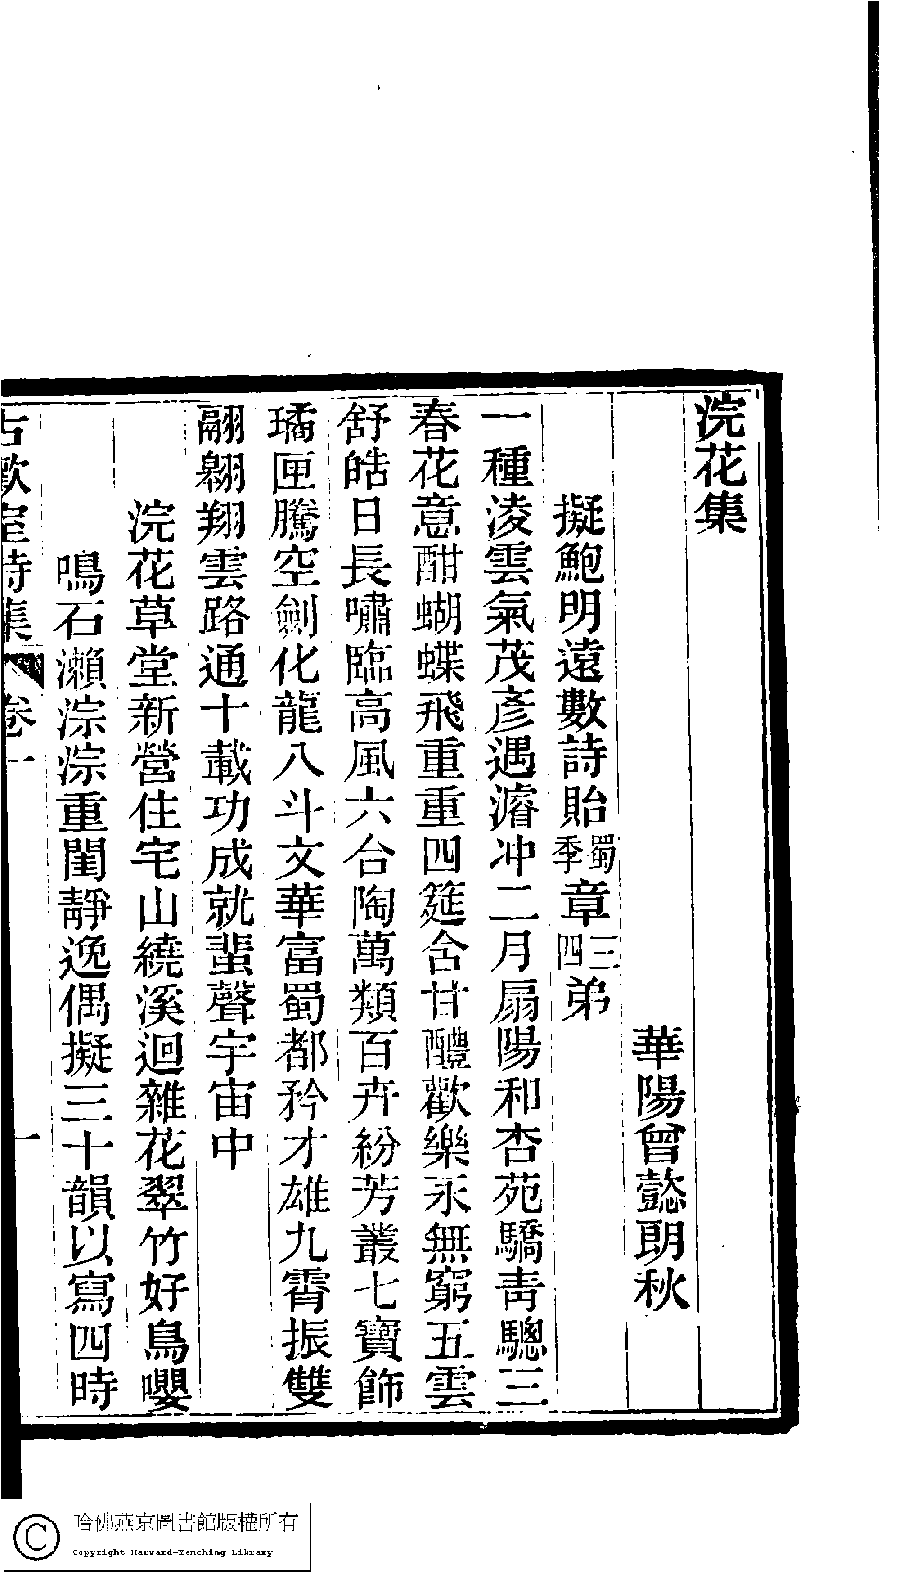 浣花集
華陽曾懿朗秋
擬鮑明遠數詩貽蜀季章三四弟
一種凌雲氣茂彥遇濬沖二月扇陽和杏苑驕青驄三
春花意酣蝴蝶飛重重四筵合甘醴歡樂永無窮五雲
舒皓日長嘯臨高風六合陶萬類百卉紛芳叢七寶飾
璚匣騰空劍化龍八斗文華富蜀都矜才雄九霄振雙
翮翱翔雲路通十載功成就蜚聲宇宙中
浣花草堂新營住宅山繞溪迴雜花翠竹好鳥嚶
鳴石瀨淙淙重闈靜逸偶擬三十韻以寫四時
古歡室詩集 卷一 一
哈佛燕京圖書館版權所有
Copyright Harvard-Yenching Library